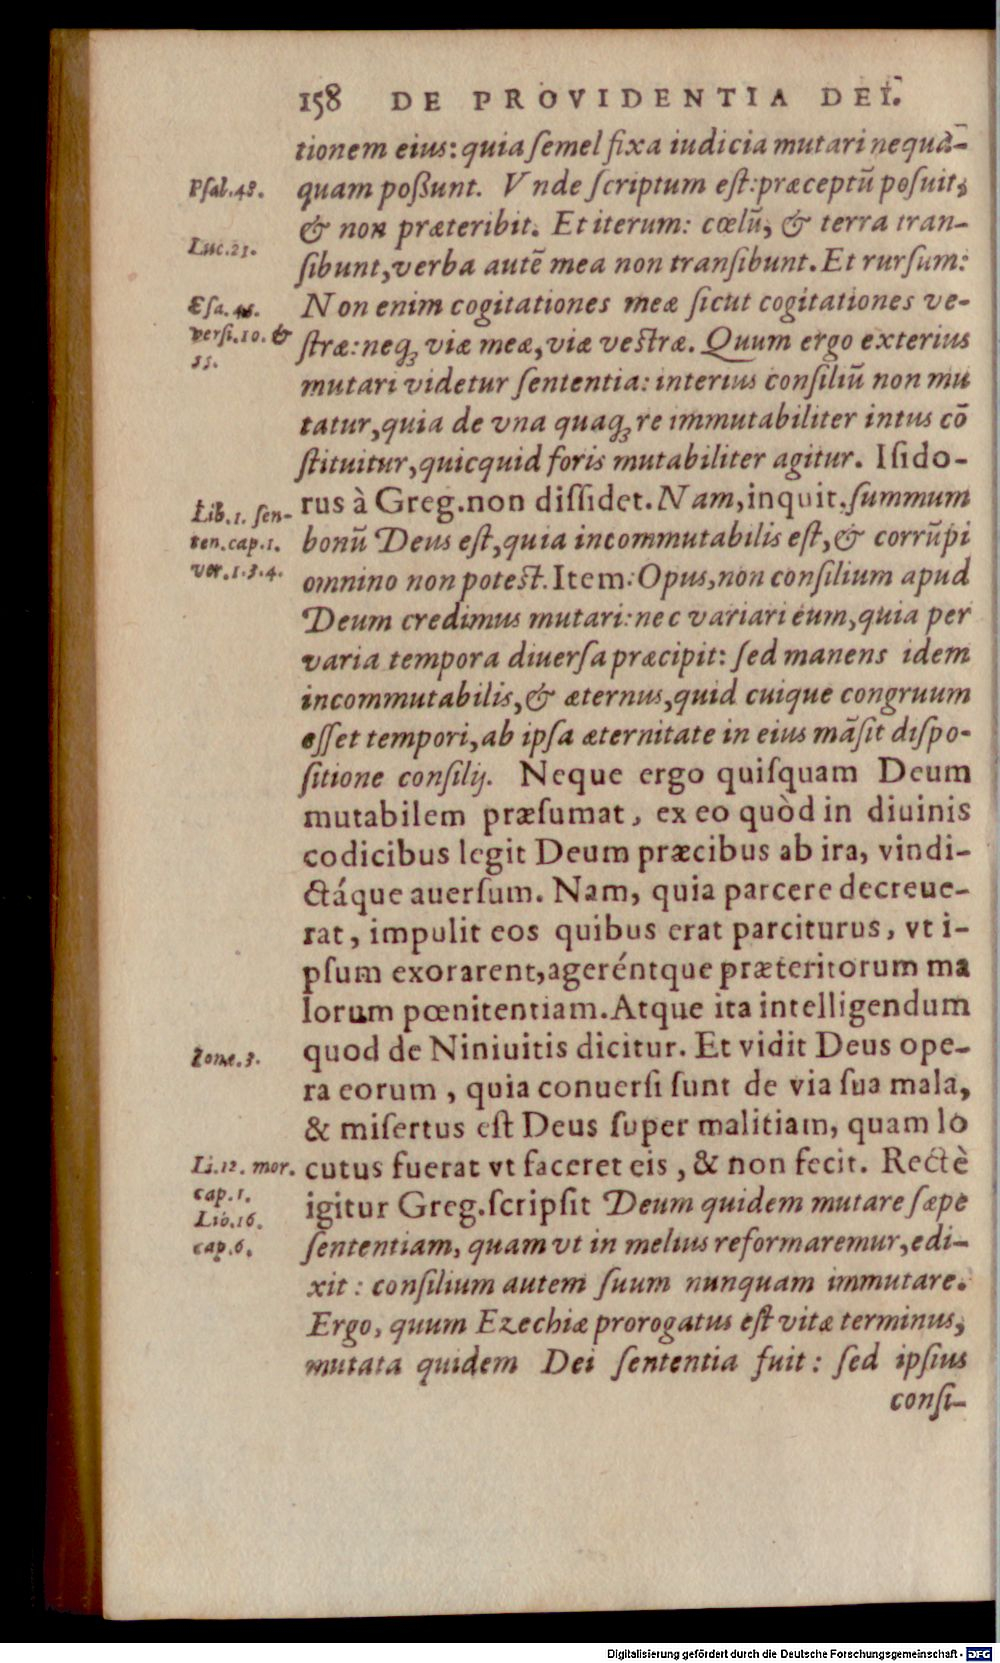 158 DE PROVIDENTIA DEI.
tionem eius: quia ſemel fixa iudicia mutari nequa-
Pſal.48. quam poßunt. Vnde ſcriptum eſt: præceptũ poſuit,
& non præteribit. Et iterum: cœlũ, & terra tran-
Luc.21.
ſibunt, verba autẽ mea non tranſibunt. Et rurſum:
Eſa. Non enim cogitationes meæ ſicut cogitationes ve-
verſi.10. &
55.
ſtræ: neq; viæ meæ, viæ veſtræ. Quum ergo exterius
mutari videtur ſententia: interius conſiliũ non mu
tatur, quia de vna quaq; re immutabiliter intus cõ
ſtituitur, quicquid foris mutabiliter agitur. Iſido-
Lib.1. ſen-
ten.cap.1.
ver.1.3.4.
rus à Greg. non diſſidet. Nam, inquit, ſummum
bonũ Deus eſt, quia incommutabilis eſt, & corrũpi
omnino non poteſt. Item: Opus, non conſilium apud
Deum credimus mutari: nec variari eum, quia per
varia tempora diuerſa præcipit: ſed manens idem
incommutabilis, & æternus, quid cuique congruum
eſſet tempori, ab ipſa æternitate in eius mãſit diſpo-
ſitione conſilij. Neque ergo quiſquam Deum
mutabilem præſumat, ex eo quòd in diuinis
codicibus legit Deum præcibus ab ira, vindi-
ctáque auerſum. Nam, quia parcere decreue-
rat, impulit eos quibus erat parciturus, vt i-
pſum exorarent, ageréntque præteritorum ma
lorum pœnitentiam. Atque ita intelligendum
Ione.3. quod de Niniuitis dicitur. Et vidit Deus ope-
ra eorum, quia conuerſi ſunt de via ſua mala,
& miſertus eſt Deus ſuper malitiam, quam lo
Li.12. mor.
cap.1.
Lib.16.
cap.6.
cutus fuerat vt faceret eis, & non fecit. Rectè
igitur Greg. ſcripſit Deum quidem mutare ſæpe
ſententiam, quam vt in melius reformaremur, edi-
xit: conſilium autem ſuum nunquam immutare.
Ergo, quum Ezechiæ prorogatus eſt vitæ terminus,
mutata quidem Dei ſententia fuit: ſed ipſius
conſi-
Digitalisierung gefördert durch die Deutsche Forschungsgemeinschaft - DFG